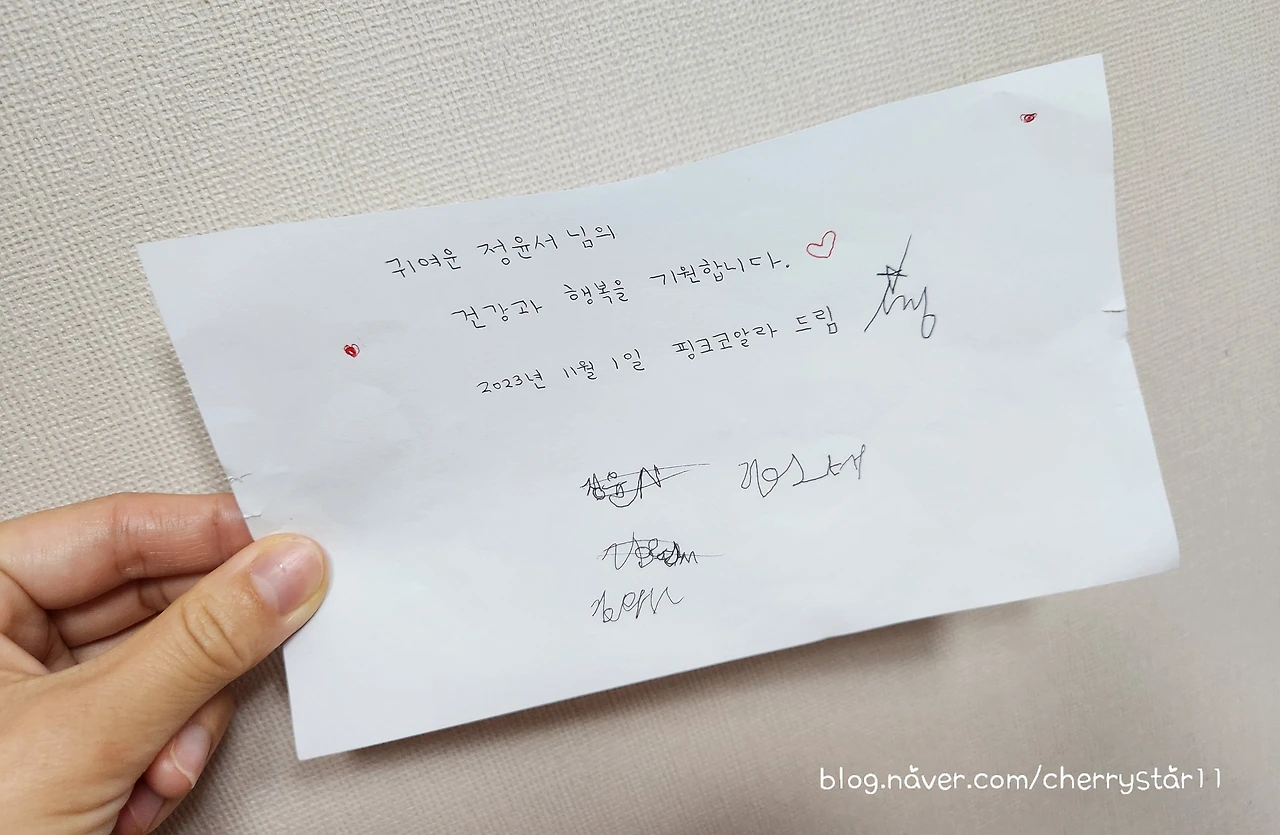 귀여운 정윤서 님의
건강과 행복을 기원합니다.
2023년 11월 1일 핑크코알라 드림
blog.naver.com/cherrystar11